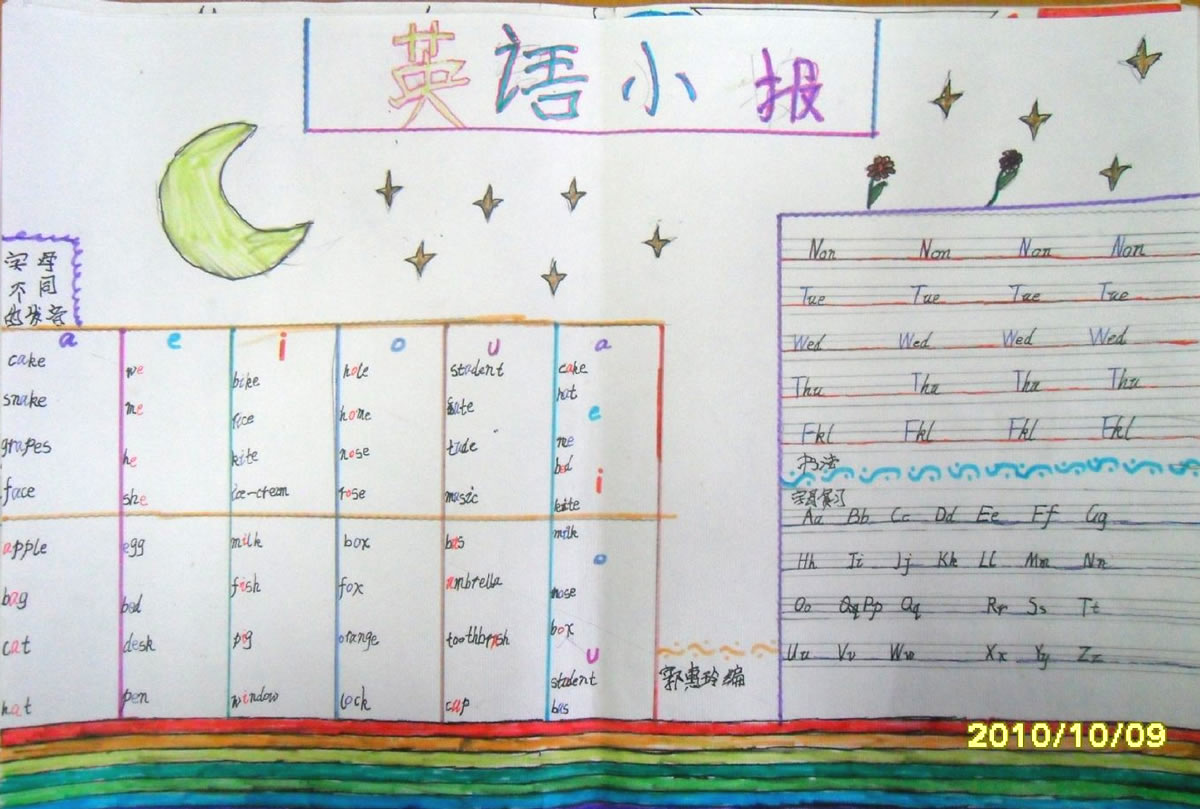 英语小报
字母
不同
的发音
a e i o u a
cake we bike hole student cake
hat
snake me face home tube e
grapes he kite nose tude me
bed
face she ice-cream rose music i
kite
apple egg milk box bus milk
o
bag bed fish fox umbrella nose
cat desk pig orange toothbrush box
u
student
hat pen window lock cap bus
郭惠玲编
Non Non Non Non
Tue Tue Tue Tue
Wed Wed Wed Wed
Thu Thu Thu Thu
Fkl Fkl Fkl Fkl
书法
字母复习
Aa Bb Cc Dd Ee Ff Gg
Hh Ii Jj Kk Ll Mm Nn
Oo Pp Qq Rr Ss Tt
Uu Vv Ww Xx Yy Zz
2010/10/09